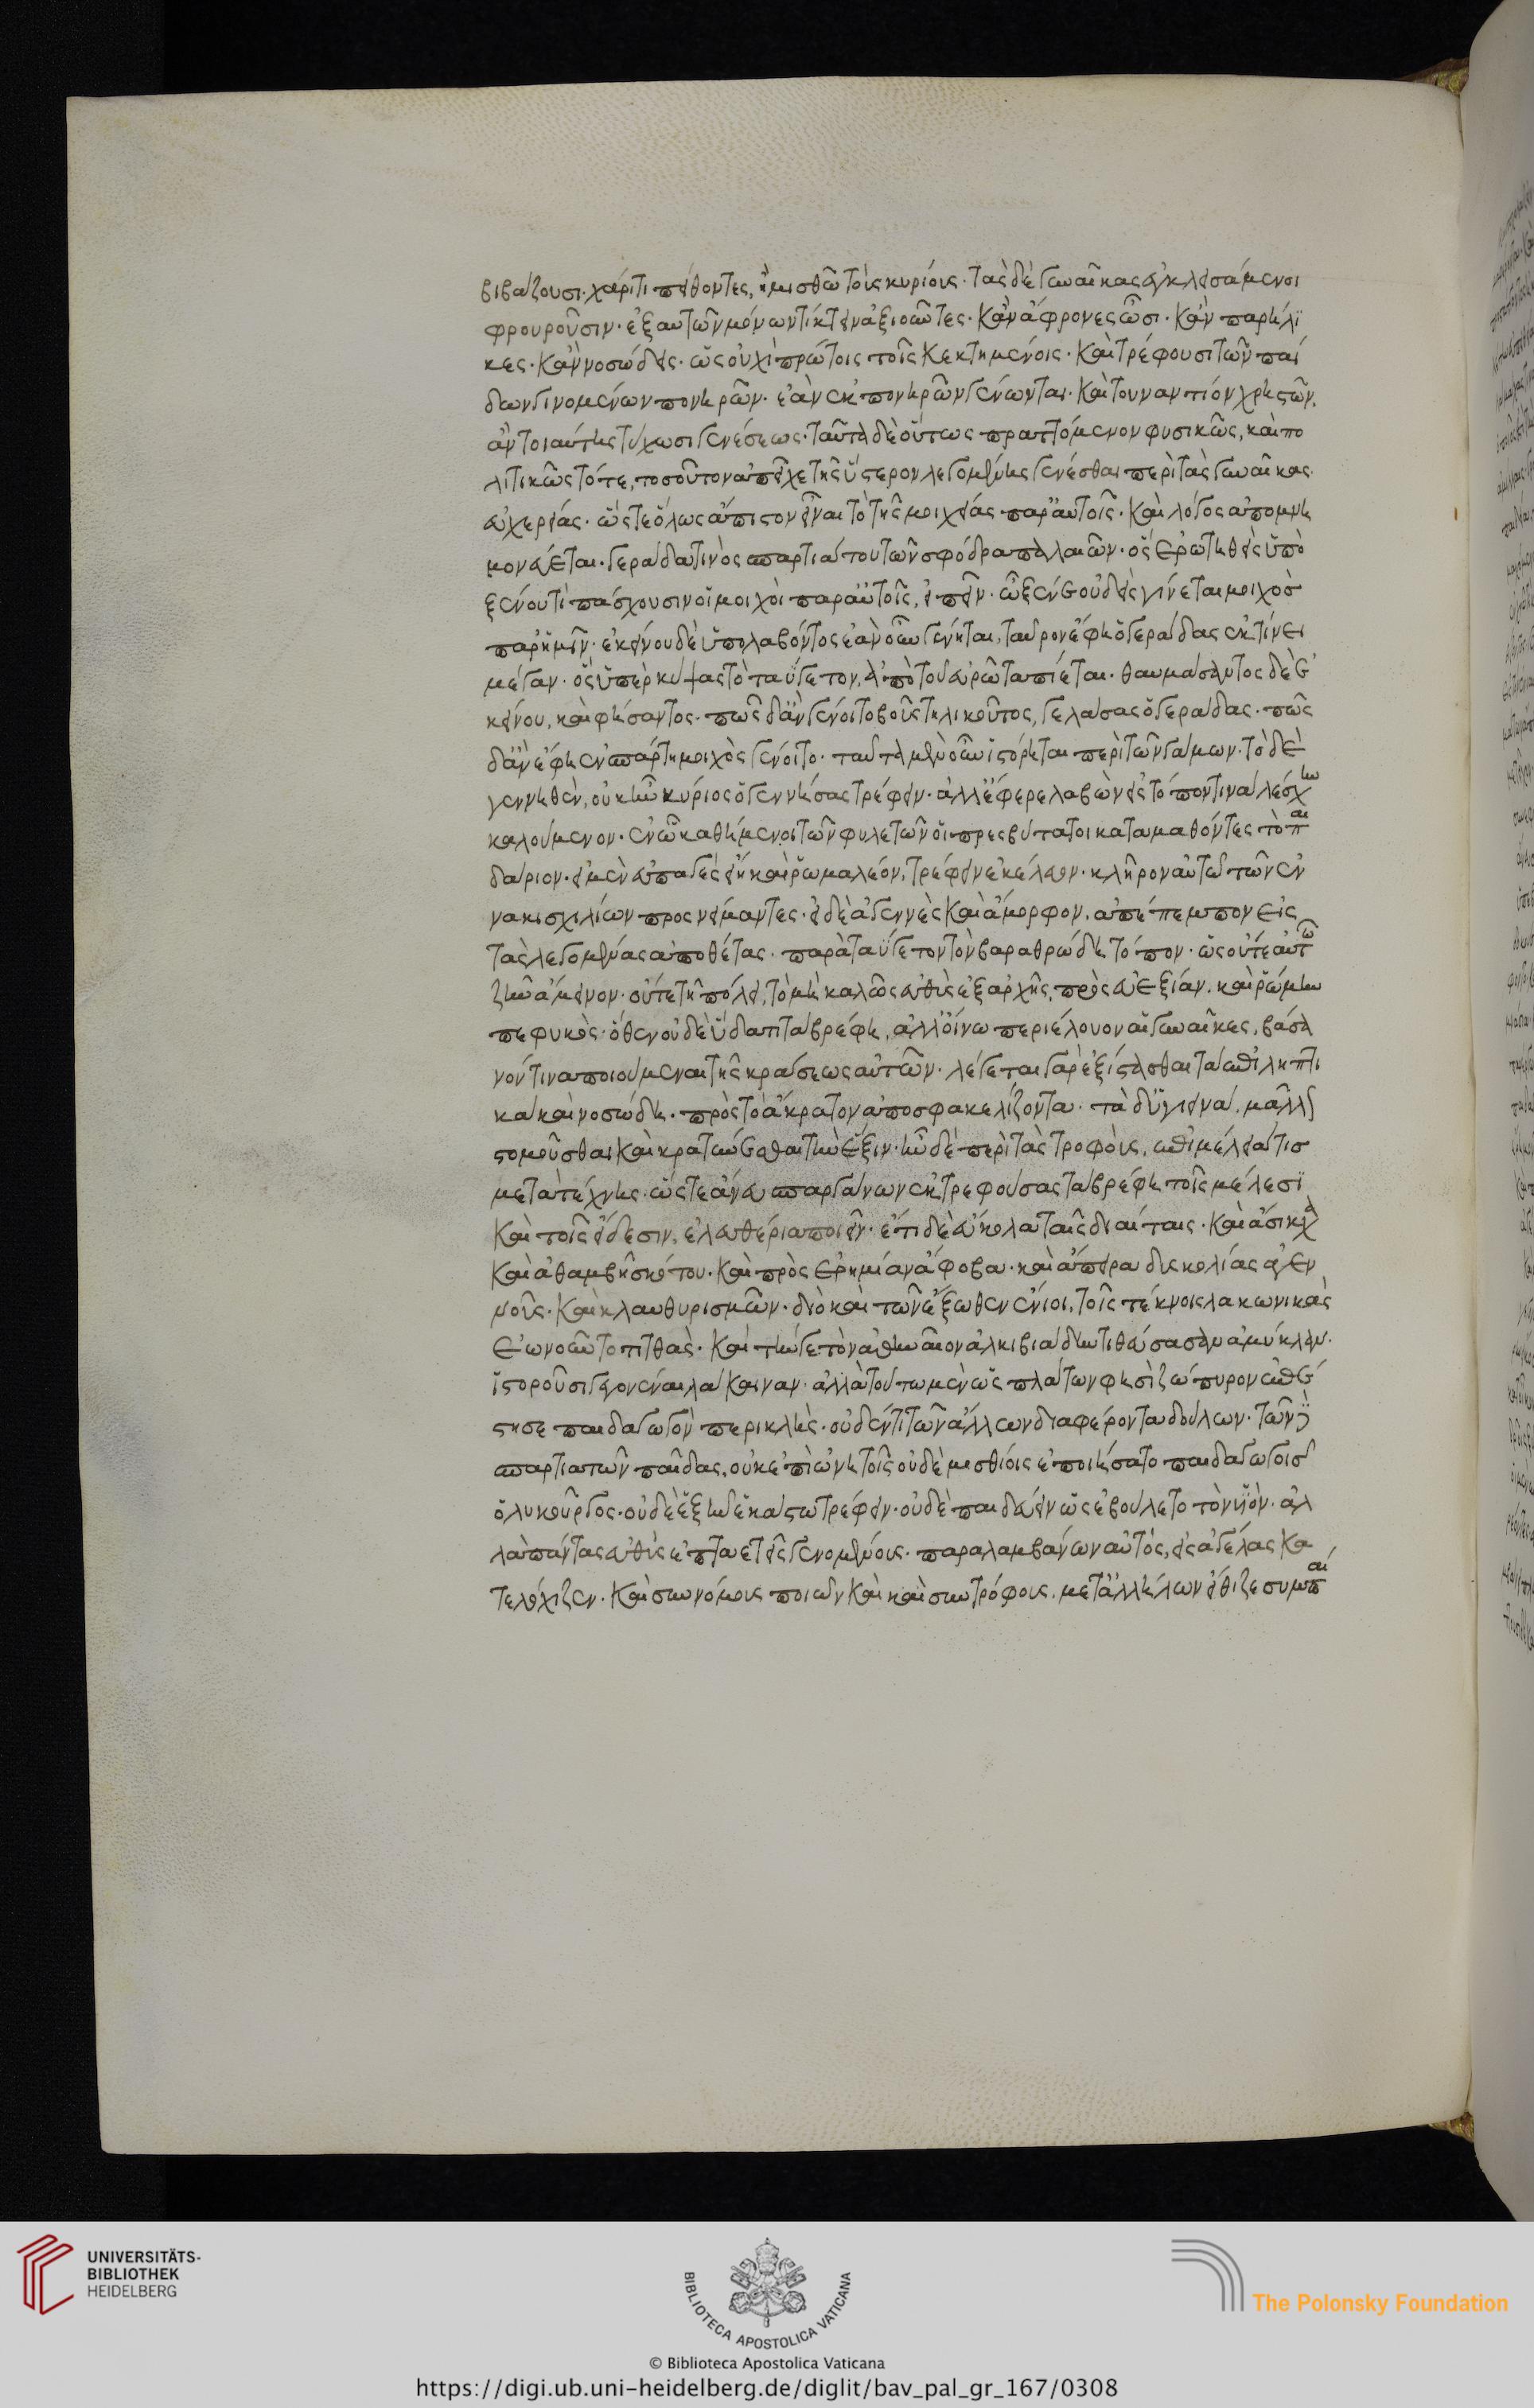 βιβάζουσι· χάριτι πείθοντες, ἢ μισθῶ τοὺς κυρίους· τὰς δὲ γυναῖκας ἐγκλεισάμενοι
φρουροῦσιν· ἐξ αυτῶν μόνων τίκτειν ἀξιοῦντες· κἂν ἄφρονες ὦσι· κἂν παρήλϊ
κες· κἂν νοσώδεις· ὡς οὐχὶ πρώτοις τοῖς κεκτημένοις· καὶ τρέφουσι τῶν παί
δων γινομένων πονηρῶν· ἐὰν ἐκ πονηρῶν γένωνται· καὶ τουναντίον χρηστῶν,
ἂν τοιαύτης τύχωσι γενέσεως· ταῦτα δὲ οὕτως πραττόμενον φυσικῶς, καὶ πο
λιτικῶς τότε, τοσοῦτον ἀπεῖχε τῆς ὕστερον λεγομένης γενέσθαι περὶ τὰς γυναῖκας
εὐχερείας· ὥστε ὅλως ἄπιστον εἶναι τὸ τῆς μοιχείας παρ' αὐτοῖς· καὶ λόγος ἀπομνη
μονεύεται· γεράδα τινὸς σπαρτιάτου τῶν σφόδρα παλαιῶν· ὃς ἐρωτηθεὶς ὑπὸ
ξένου τί πάσχουσιν οἱ μοιχοὶ παρ' αὐτοῖς, εἶπεν· ὦ ξένε οὐδεὶς γίνεται μοιχὸσ
παρ' ἡμῖν· ἐκείνου δὲ ὑπολαβόντος ἐὰν οὖν γένηται, ταῦρον ἔφη ὁ γεράδας ἐκτίνει
μέγαν· ὃς ὑπερκύψας τὸ ταΰγετον, ἀπὸ τοῦ εὐρώτα πίεται· θαυμάσαντος δὲ ἐ
κείνου, καὶ φήσαντος· πῶς δ' ἂν γένοιτο βοῦς τηλικοῦτος, γελάσας ὁ γεράδας· πῶς
δ' ἂν ἔφη ἐν σπάρτη μοιχὸς γένοιτο· ταῦτα μὲν οὖν ἱστόρηται περὶ τῶν γάμων· τὸ δὲ
γεννηθὲν, οὐκ ἦν κύριος ὁ γεννήσας τρέφειν· ἀλλ' ἔφερε λαβὼν εἰς τόπον τινα λέσχην
καλούμενον· ἐν ᾧ καθήμενοι τῶν φυλετῶν οἱ πρεσβύτατοι καταμαθόντες τὸ παι
δάριον· εἰ μὲν εὐπαγὲς εἴη καὶ ῥωμαλέον, τρέφειν ἐκέλευον· κλῆρον αὐτῷ τῶν ἐν
νακισχιλίων προσνείμαντες· εἰ δὲ ἀγεννὲς καὶ ἄμορφον, ἀπέπεμπον εἰς
τὰς λεγομένας ἀποθέτας· παρὰ ταΰγετον τὸν βαραθρώδη τόπον· ὡς οὔτε αὐτῶ
ζῆν ἄμεινον· οὔτε τῆ πόλει, τὸ μὴ καλῶς εὐθὺς ἐξ αρχῆς, πρὸς εὐεξίαν, καὶ ῥώμην
πεφυκὸς· ὅθεν οὐδὲ ὕδατι τὰ βρέφη, ἀλλ' οἴνω περιέλουον αἱ γυναῖκες, βάσα
νόν τινα ποιούμεναι τῆς κράσεως αὐτῶν· λέγεται γὰρ ἐξίστασθαι τὰ ἐπιληπτι
κὰ καὶ νοσώδη· πρὸς τὸ ἄκρατον ἀποσφακελίζοντα· τὰ δ' ὑγιεινά, μᾶλλον
στομοῦσθαι καὶ κρατύνεσθαι τὴν ἕξιν· ἦν δὲ περὶ τὰς τροφοὺς, ἐπιμέλειά τισ
μετὰ τέχνης· ὥστε ἄνευ σπαργάνων ἐκτρεφούσας τὰ βρέφη τοῖς μέλεσϊ
καὶ τοῖς εἴδεσιν, ἐλευθέρια ποιεῖν· ἔτι δὲ εὔκολα ταῖς διαίταις· καὶ ἄσικχα
καὶ ἀθαμβῆ σκότου· καὶ πρὸς ἐρημίαν ἄφοβα· καὶ ἄπειρα δυσκολίας ἀγεν
νοῦς· καὶ κλαυθυρισμῶν· διὸ καὶ τῶν ἔξωθεν ἔνιοι, τοῖς τέκνοις λακωνικὰς
ἐωνοῦντο τιτθὰς· καὶ τήν γε τὸν ἀθηναῖον ἀλκιβιάδην τιθεύσασαν ἀμύκλαν·
ἱστοροῦσι γεγονέναι λάκαιναν· ἀλλὰ τούτω μὲν ὡς πλάτων φησὶ ζώπυρον ἐπέ
στησε παιδαγωγὸν περικλῆς· οὐδέν τι τῶν ἄλλων διαφέροντα δούλων· τῶν δὲ
σπαρτιατῶν παῖδας, οὐκ ἐπὶ ὠνητοῖς οὐδὲ μισθίοις ἐποιήσατο παιδαγωγοῖσ
ὁ λυκοῦργος· οὐδὲ ἐξῆν ἑκάστω τρέφειν· οὐδὲ παιδεύειν ὡς ἐβούλετο τὸν υἱὸν· ἀλ
λὰ πάντας εὐθὺς ἑπταετεῖς γενομένους· παραλαμβάνων αὐτός, εἰς ἀγέλας κα
τελόχιζεν· καὶ συννόμους ποιῶν καὶ καὶ συντρόφους, μετ' ἀλλήλων εἴθιζε συμπαί
UNIVERSITÄTS-
BIBLIOTHEK
HEIDELBERG
BIBLIOTECA APOSTOLICA VATICANA
The Polonsky Foundation
© Biblioteca Apostolica Vaticana
https://digi.ub.uni-heidelberg.de/diglit/bav_pal_gr_167/0308